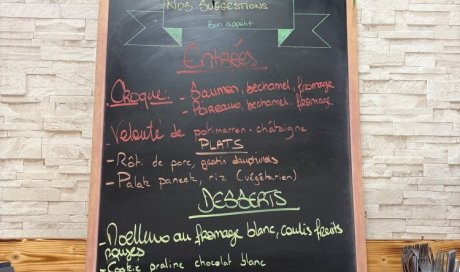 Nos Suggestions
Bon appétit
Entrées
Croque - Saumon, bechamel, fromage
- Poireaux, bechamel, fromage
- Velouté de potimarron - châtaigne
PLATS
- Rôti de porc, gratin dauphinois
- Palak paneer, riz (végétarien)
DESSERTS
- Moelleux au fromage blanc, coulis fruits
rouges
- Cookie praline chocolat blanc